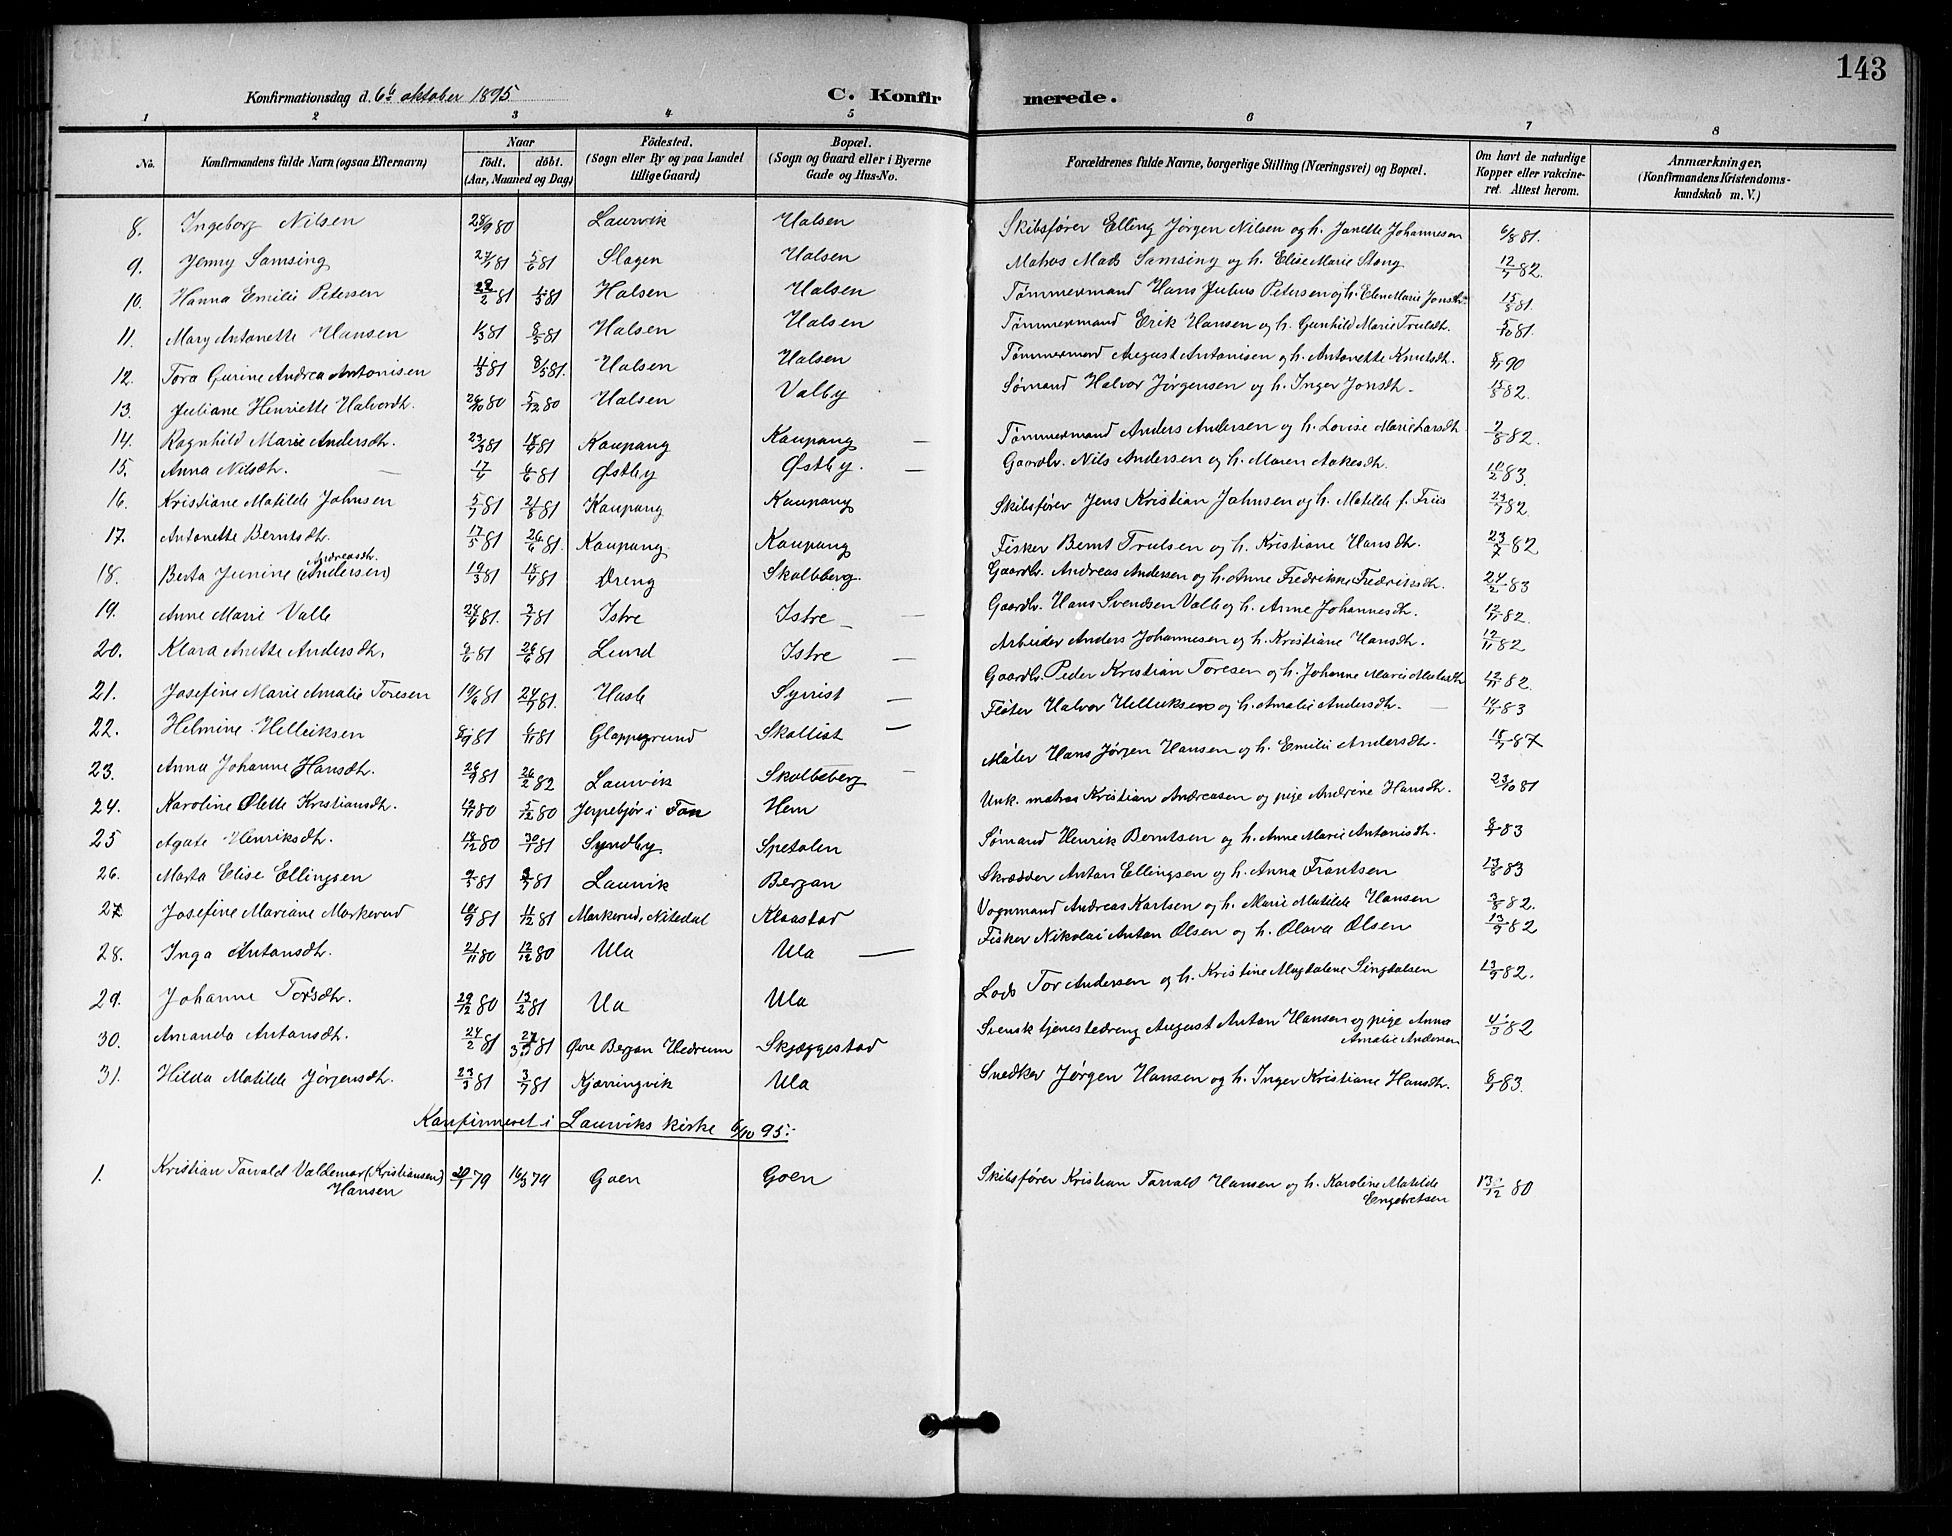 143
Konfirmationsdag d. 6te oktober 1895
C. Konfirmerede.
1 2 3 4 5 6 7 8
No. | Konfirmandens fulde Navn (ogsaa Efternavn) | Naar födt, döbt. (Aar, Maaned og Dag) | Födested. (Sogn eller By og paa Landet tillige Gaard) | Bopæl. (Sogn og Gaard eller i Byerne Gade og Hus-No. | Forældrenes fulde Navne, borgerlige Stilling (Næringsvei) og Bopæl. | Om havt de naturlige Kopper eller vakcineret. Attest herom. | Anmærkninger, (Konfirmandens Kristendomskundskab m. V.)
8. Ingeborg Nilsen 28/9 80 Laurvik Halsen Skibsfører Elling Jørgen Nilsen og h. Janette Johannesen 6/8 81.
9. Jenny Samsing 27/1 81 5/6 81 Slagen Halsen Matros Mads Samsing og h. Elise Marie Stang 12/7 82.
10. Hanna Emilie Petersen 22/2 81 1/5 81 Halsen Halsen Tømmermand Hans Julius Petersen og h. Elen Marie Jonsdtr. 15/8 81.
11. Mary Antonette Hansen 1/3 81 8/5 81 Halsen Halsen Tømmermand Erik Hansen og h. Gunhild Marie Trulsdtr. 5/10 81.
12. Tora Gurine Andrea Antonisen 4/3 81 8/5 81. Halsen Halsen Tømmermand August Antonisen og h. Antonette Knutsdtr. 8/11 90
13. Juliane Henriette Halvordtr. 26/10 80 5/12 80 Halsen Valby Sømand Halvor Jørgensen og h. Inger Jonsdtr. 15/8 82.
14. Ragnhild Marie Andersdtr. 23/3 81 18/4 81 Kaupang Kaupang — Tømmermand Anders Andersen og h. Lovise Marie Larsdtr. 7/8 82.
15. Anna Nilsdtr. — 17/4 6/6 81 Østby Østby. — Gaardbr. Nils Andersen og h. Maren Aakesdtr. 10/2 83.
16. Kristiane Matilde Johnsen 5/7 81 21/8 81 Kaupang Kaupang Skibsfører Jens Kristian Johnsen og h. Matilde f. Friis 23/7 82.
17. Antonette Berntsdtr. 17/5 81 26/6 81. Kaupang Kaupang Fisker Bernt Trulsen og h. Kristiane Hansdtr. 23/7 82
18. Berta Junine (Andersen) Andreasdtr. 19/3 81 18/4 81 Dreng Skalleberg. Gaardbr. Andreas Andersen og h. Anne Fredrikke Fredriksdtr. 24/2 83
19. Anne Marie Valle 24/6 81. 3/7 81 Istre Istre — Gaardbr. Hans Svendsen Valle og h. Anne Johannesdtr. 12/11 82.
20. Klara Anette Andersdtr. 2/6 81 26/6 81 Lund Istre — Arbeider Anders Johannesen og h. Kristiane Hansdtr. 12/11 82
21. Josefine Marie Amalie Toresen 19/6 81 24/7 81. Hasle Syrrist — Gaardbr. Peder Kristian Toresen og h. Johanne Marie Matisdtr. 12/11 82.
22. Helmine Helleiksen 8/9 81 6/11 81 Gloppegrund Skallist — Fløter Halvor Helleiksen og h. Amalie Andersdtr. — 14/11 83
23. Anna Johanne Hansdtr. 26/9 81 26/2 82 Laurvik Skalleberg — Maler Hans Jørgen Hansen og h. Emilie Andersdtr. 15/7 87
24. Karoline Olette Kristiansdtr. 12/11 80 5/12 80 Jerpebjør i Tøn Hem Unk. matros Kristian Andreasen og pige Andrine Hansdtr. 23/10 81
25 Agate Henriksdtr. 18/12 80 30/1 81 Syndby Spetalen Sømand Henrik Berntsen og h. Anne Marie Antonisdtr. 8/7 83
26. Marta Elise Ellingsen 9/5 81 3/7 81 Laurvik Bergan Skrædder Antan Ellingsen og h. Anna Frantsen 13/8 83
27. Josefine Mariane Markerud 10/9 81 11/12 81 Markerud, Nitedal Klaastad Vognmand Andreas Karlsen og h. Marie Matilde Hansen 3/8 82.
28. Inga Antonsdtr. 21/11 80 12/12 80 Ula Ula — Fisker Nikolai Anton Olsen og h. Olava Olsen 13/9 82
29. Johanne Torsdtr. 29/12 80 13/2 81 Ula Ula Lods Tor Andersen og h. Kristine Magdalene Singdalsen 13/9 82.
30. Amanda Antonsdtr. 24/2 81 27/3 81 Øvre Bergan Hedrum Skjæggestad Svensk tjenestedreng August Anton Hansen og pige Anna Amalie Andersen 4/9 82
31. Hilda Matilde Jørgensdtr. 23/3 81 3/7 81 Kjærringvik Ula Snedker Jørgen Hansen og h. Inger Kristiane Hansdtr. 8/7 83.
Konfirmeret i Laurviks kirke 6/10 95:
1. Kristian Torvald Valdemar (Kristiansen) Hansen 20/1 79 16/3 79 Goen Goen Skibsfører Kristian Torvald Hansen og h. Karoline Matilde Engebretsen 13/12 80